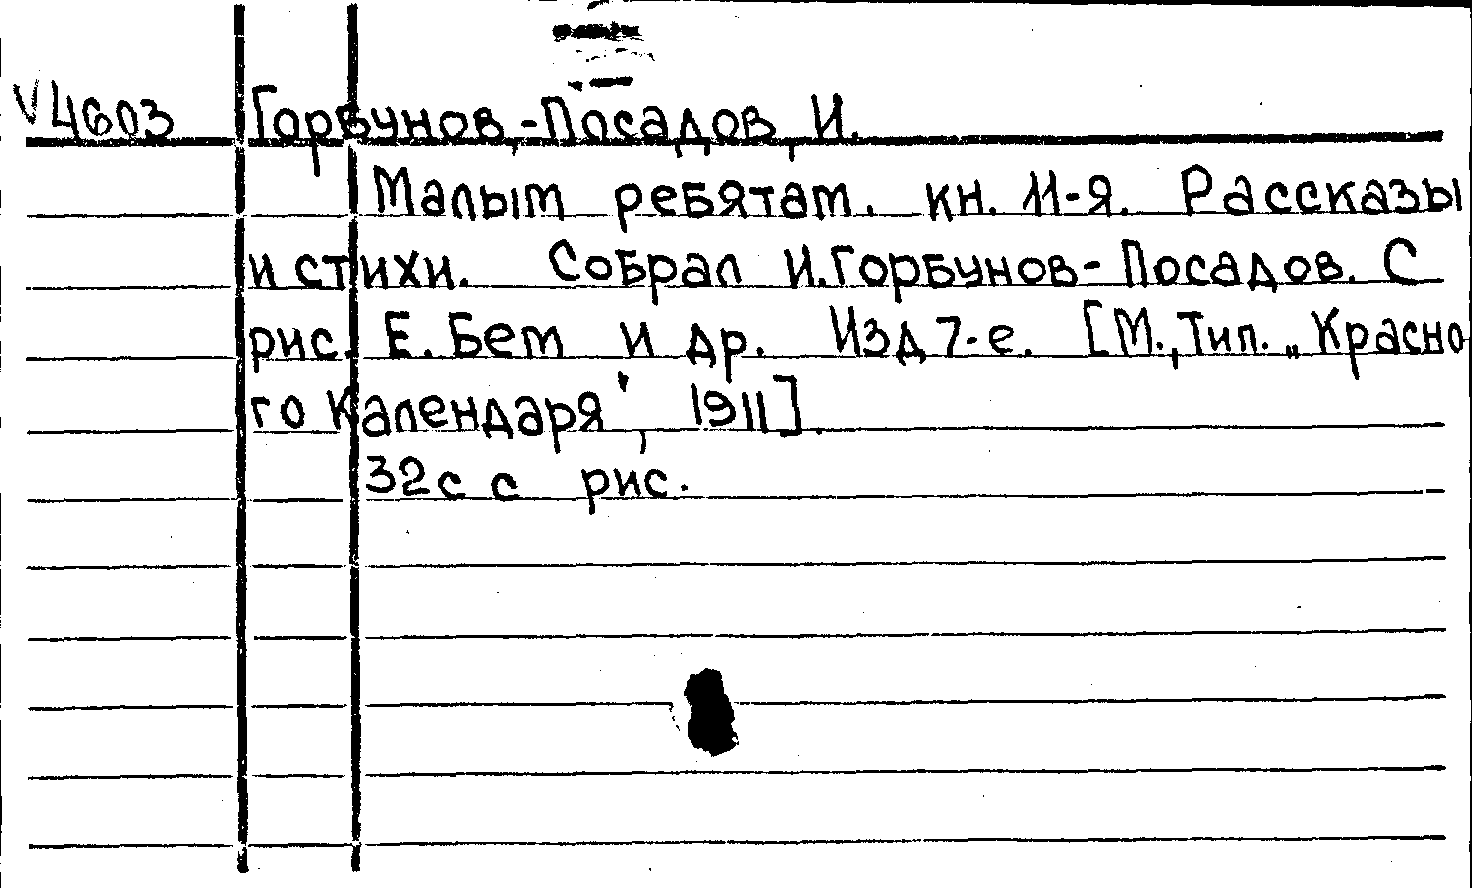 V4603 Горбунов-Посадов, И.
Малым ребятам. кн. 11-я. Рассказы
и стихи. Собрал И.Горбунов-Посадов. С
рис. Е. Бем и др. Изд 7-е. [М., Тип. „Красно
го Календаря", 1911].
32с с рис.